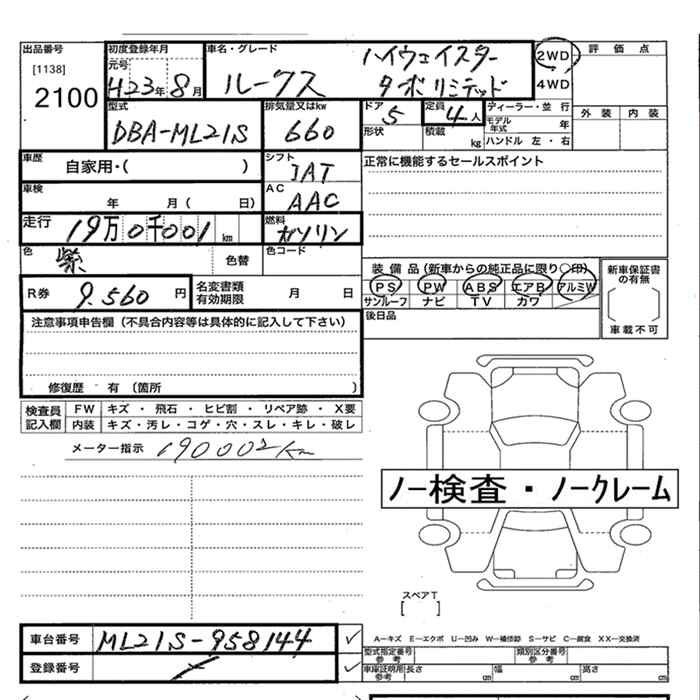 出品番号 [1138] 2100
初度登録年月 元号 H23年8月
車名・グレード ルークス ハイウェイスター ターボリミテッド
2WD 4WD
評価点
外装 内装
型式 DBA-ML21S
排気量又はkw 660
ドア 5 形状
定員 4人 積載 kg
ディーラー・並行
モデル年式 年
ハンドル 左・右
車歴 自家用・( )
シフト IAT
正常に機能するセールスポイント
車検 年 月( 日)
AC AAC
走行 19万0千001km
燃料 ガソリン
色 紫 色替
色コード
装備品(新車からの純正品に限り〇印)
PS PW ABS エアB アルミW
サンルーフ ナビ TV カワ
新車保証書の有無
車載不可
R券 9.560円
名変書類有効期限 月 日
後日品
注意事項申告欄(不具合内容等は具体的に記入して下さい)
修復歴 有(箇所 )
検査員記入欄 FW キズ・飛石・ヒビ割・リペア跡・X要
内装 キズ・汚レ・コゲ・穴・スレ・キレ・破レ
メーター指示 190002km
ノー検査・ノークレーム
スペアT
[ ]
車台番号 ML21S-958144 ✓
登録番号 ✓
A-キズ E-エクボ U-凹み W-補修跡 S-サビ C-腐食 XX-交換済
型式指定番号 参考
類別区分番号 参考
車庫証明用 参考 長さ cm 幅 cm 高さ cm